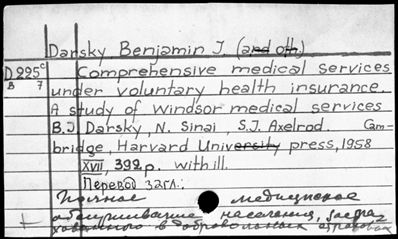 Darsky, Benjamin J. (and oth.)
D 225c Comprehensive medical services
B 7 under voluntary health insurance.
A study of Windsor medical services
B.J. Darsky, N. Sinai, S.J. Axelrod. Cam-
bridge, Harvard University press, 1958
XVII, 392 p. with ill.
Перевод загл.:
Полное медицинское
обслуживание населения, застра-
хованного в добровольных страховых